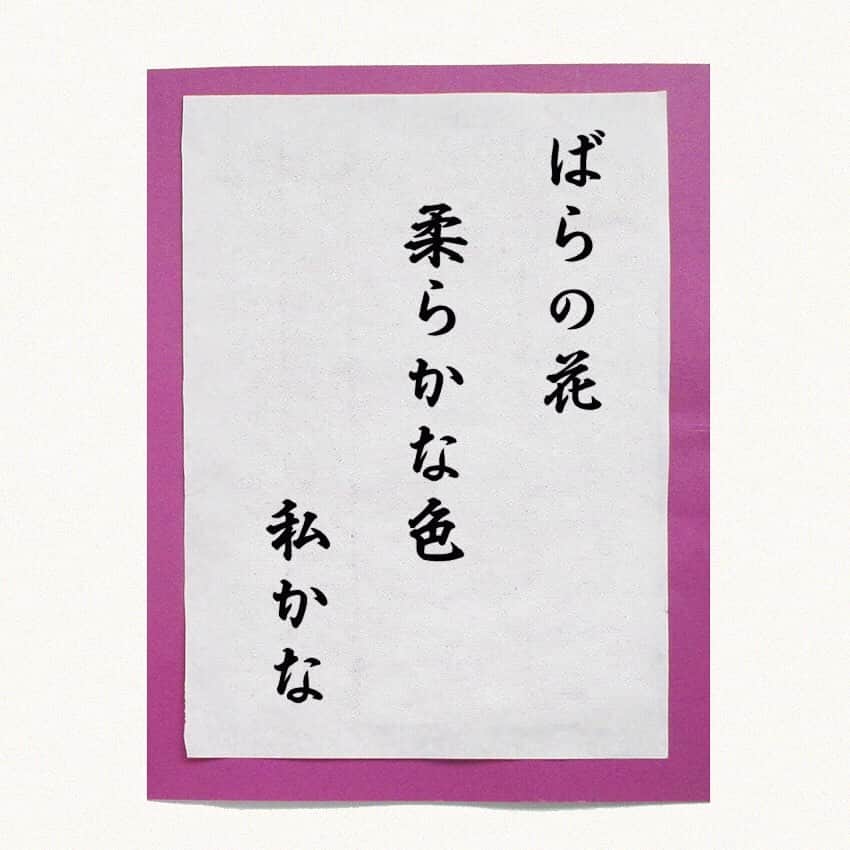 ばらの花
柔らかな色
私かな